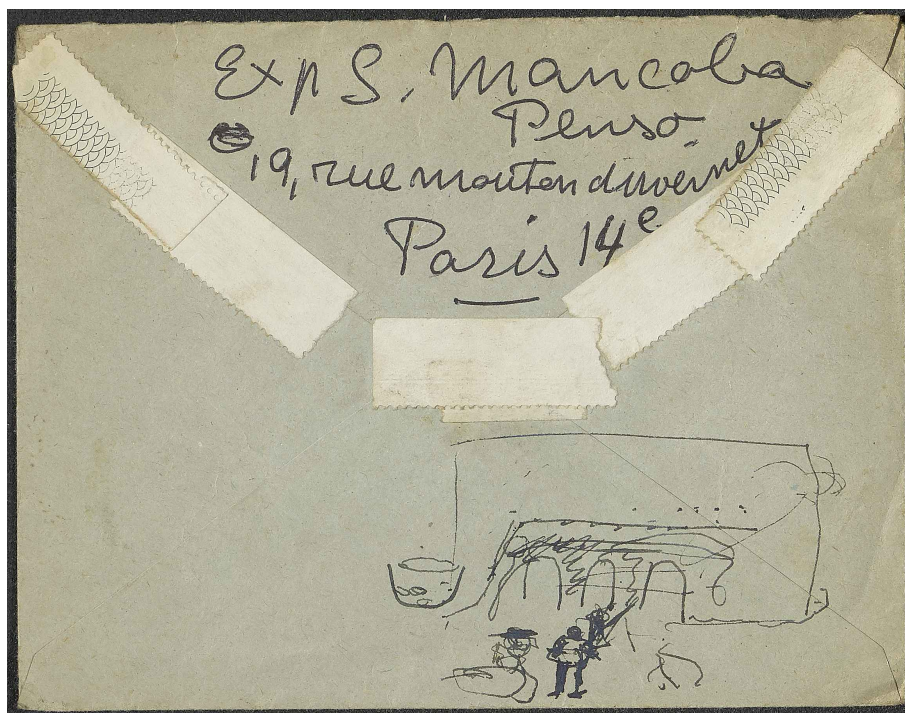 Exp S. Mancoba
Penso
19, rue mouton duvernet
Paris 14e